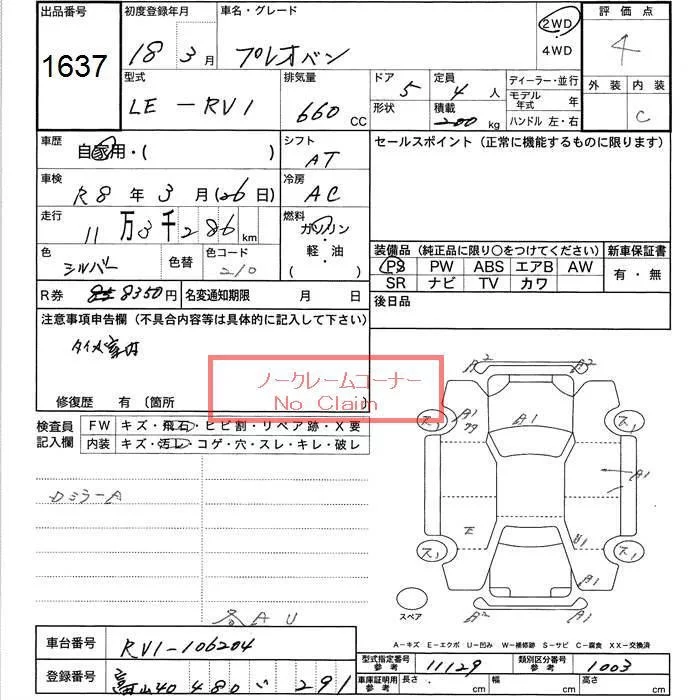 出品番号 1637
初度登録年月 18年 3月
車名・グレード プレオバン
2WD ・ 4WD
評価点 4
外装 内装 C
型式 LE-RV1
排気量 660 CC
ドア 5
形状
定員 4 人
積載 200 kg
ディーラー・並行
モデル年式 年
ハンドル 左・右
車歴 自家用・( )
シフト AT
セールスポイント (正常に機能するものに限ります)
車検 R8年 3月 (26日)
冷房 AC
走行 11万3千286 km
燃料 ガソリン
軽・油
( )
色 シルバー
色替
色コード 210
装備品 (純正品に限り○をつけてください)
新車保証書
PS PW ABS エアB AW
SR ナビ TV カワ
有・無
R券 8350円
名変通知期限 月 日
後日品
注意事項申告欄 (不具合内容等は具体的に記入して下さい)
ノークレームコーナー
No Claim
修復歴 有 〔箇所
検査員記入欄
FW キズ・飛石・ヒビ割・リペア跡・X要
内装 キズ・汚レ・コゲ・穴・スレ・キレ・破レ
ロミラーA
A2 A2
ス1 A1 A1 ス1
A1
E
B1
ス1 ス1
B1
A2 A3
スペア
各AU
A-キズ E-エクボ U-凹み W-補修跡 S-サビ C-腐食 XX-交換済
車台番号 RV1-106204
型式指定番号 参考 11129
類別区分番号 参考 1003
登録番号 富山40 480 い 291
車庫証明用 参考 長さ cm 幅 cm 高さ cm